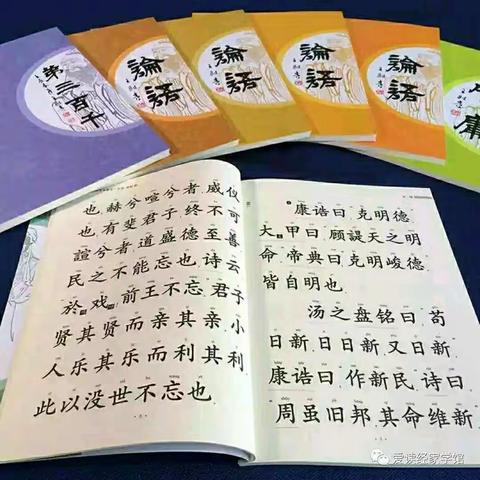 弟三百千
論語
論語
論語
論語
庸
也 赫兮喧兮者 威仪
也 有斐君子 终不可
諠兮者 道盛德至善
民之不能忘也 诗云
於戏 前王不忘 君子
贤其贤而亲其亲 小
人乐其乐而利其利
此以没世不忘也
康诰曰 克明德
大甲曰 顾諟天之明
命 帝典曰 克明峻德
皆自明也
汤之盘铭曰 苟
日新 日日新 又日新
康诰曰 作新民 诗曰
周虽旧邦 其命维新
爱读经家学馆